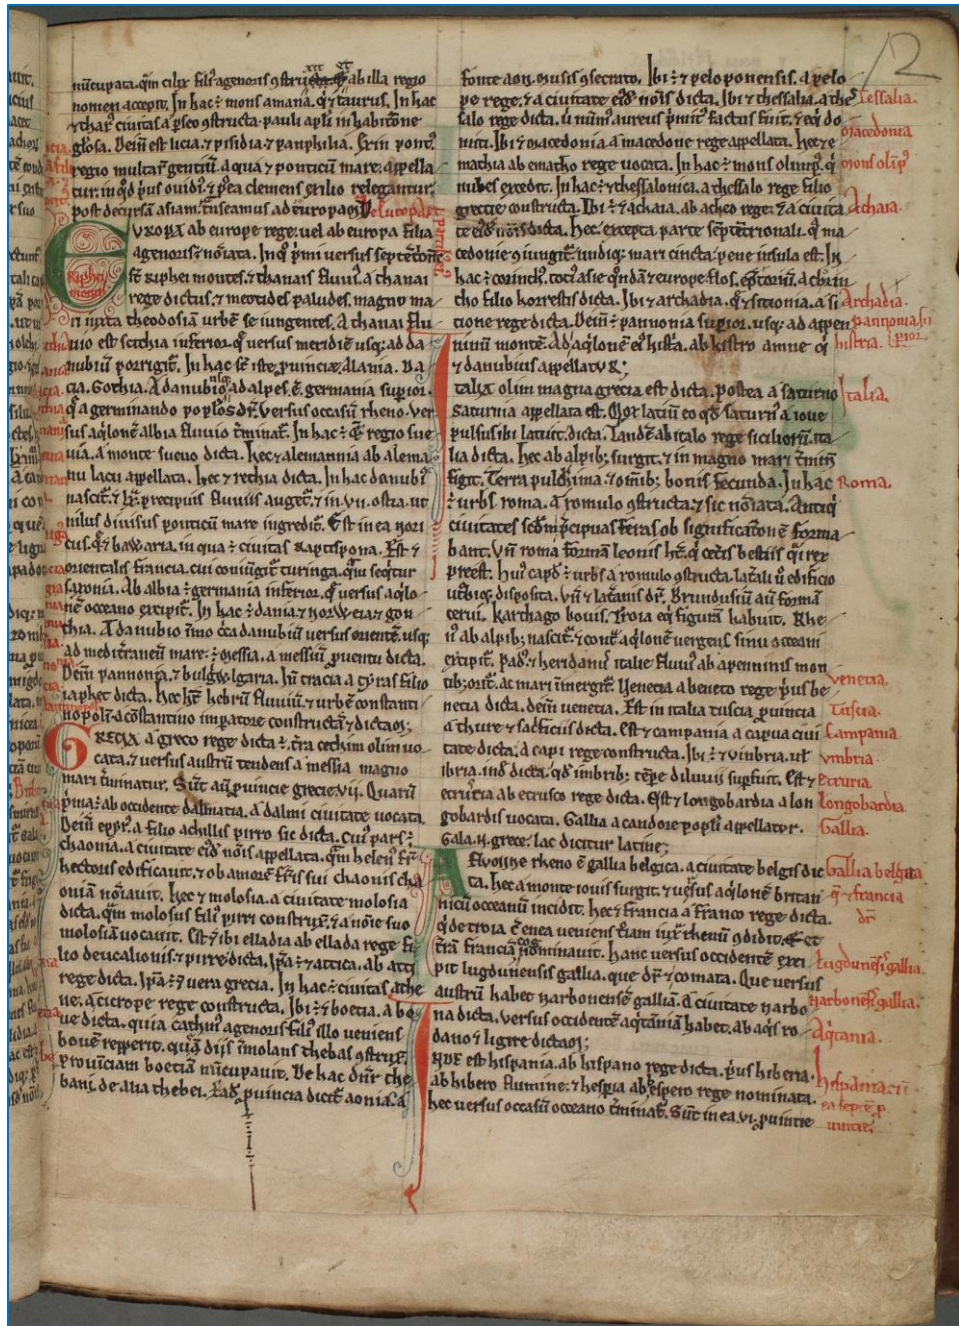 nūcupata. qm̄ cilix fili᷒ agenoris ꝯstruxit et ab illa regio
nomen accepit. In hac ⁊ mons amana. q̄ ⁊ taurus. In hac
⁊ thars᷒ ciuitas a ꝑseo ꝯstructa. pauli apl̄i inhabitone
gl̄osa. Dein̄ est licia. ⁊ pisidia ⁊ panphilia.
regio multar̄ gentiū. a qua ⁊ ponticū mare. appella
tur. in qd̄ p̄us ouidi᷒. ⁊ p᷒ea clemens exilio relegantur.
post decursā asiam. tn̄seamus ad europam; De europa
EUROPA ab europe rege. uel ab europa filia
agenoris ⁊ nōiata. In q᷒ p̄mi versus septētrionē
st̄ Riphei montes. ⁊ thanais fluui᷒. a thanai
Riphei
montes
rege dictus. ⁊ meotides paludes. magno ma
ri iuxta theodosiā urbē se iungentes. A thanai flu
uio est scithia inferior. q̄ versus meridiē usq; ad da
nubiū porrigit̄. In hac st̄ iste ꝓuincie. Alania. Da
cia. Gothia. A danubio usq; ad alpes. ē. germania suꝑior.
q̄ a germinando popl̄os dr̄. Versus occasū rheno. ver
sus aq̄lonē albia fluuio t̄minat̄. In hac ⁊ q̄ regio sue
uia. a monte sueuo dicta. Hec ⁊ alemannia ab alema
nu lacu appellata. Hec ⁊ rethia dicta. In hac danubi᷒
nascit̄. ⁊ lx. precipuis fluuiis auget̄. ⁊ in. vii. ostia. ut
nilus diuisus ponticū mare ingredit̄. Est in ea nori
cus. q̄ ⁊ bawaria. in qua ⁊ ciuitas Ratispona. Est ⁊
orientalis francia. cui coniūgit̄ turinga. qm̄ seq̄tur
saxonia. Ab albia ⁊ germania inferior. q̄ versus aq̄lo
nē oceano excipit̄. In hac ⁊ dania. ⁊ Norweia. ⁊ got
thia. A danubio
ad mediterraneū mare. ⁊ messia. a messiū ꝓuentu dicta.
Dein̄ pannonia. ⁊ bulgaria. Hīc tracia a tyras filio
iaphet dicta. Hec hꝫ hebrū fluuiū. ⁊ urbē constanti
nopolī a cōstantino imꝑatore constructā ⁊ dictam;
GRECIA a greco rege dicta ⁊. cethim olim uo
cata. ⁊ versus austrū tendens a messia magno
mari t̄minatur. Sūt aū ꝓuincie grecie. vii. Quarū
p̄ma ⁊ ab occidente dalmatia. a dalmi ciuitate uocata.
Dein̄ epyr᷒. a filio achillis pirro sic dicta. Cui᷒ pars ⁊
chaonia. a ciuitate eid̄ nōis appellata. qm̄ helen᷒ fr̄
hectoris edificauit. ⁊ ob amorē fr̄is sui chaonis cha
oniā nōiauit. Hec ⁊ molosia. a ciuitate molosia
dicta. qm̄ molosus fili᷒ pirri construx̄. ⁊ a noīe suo
molosiā uocauit. Est ⁊ ibi elladia ab ellada rege fi
lio deucalionis. ⁊ pirre dicta. Ipā ⁊ ⁊ attica. ab atti
rege dicta. Ipā ⁊ ⁊ vera grecia. In hac ⁊ ciuitas athe
ne. a cicrope rege constructa. Ibi ⁊ ⁊ boetia. a bo
ue dicta. quia cathm᷒ agenoris fili᷒ illo veniens
bouē repperit. quā diis īmolans thebas ꝯstrux̄.
ꝓuinciam boetiā nūcupauit. De hac dn̄r the
bani. de alia thebei. Ead̄ ꝓuincia dicit̄ aonia. a
fonte aon. musis ꝯsecrato. Ibi ⁊ ⁊ peloponensis. a pelo
pe rege. ⁊ a ciuitate eid̄ nōis dicta. Ibi ⁊ ⁊ thessalia. a thes
salo rege dicta. ī nūm᷒ aureus p̄mit᷒ factus fuit. ⁊ eq̄ do
miti. Ibi ⁊ macedonia a macedone rege appellata. Hec ⁊ e
mathia ab ematho rege uocata. In hac ⁊ mons olimp᷒. q̄
nubes excedit. In hac ⁊ ⁊ thessalonica. a thessalo rege filio
grecie constructa. Ibi ⁊ ⁊ achaia. ab acheo rege. ⁊ a ciuita
te eid̄ nōis dicta. Hec excepta parte septētrionali. q̄ ma
cedonie ꝯiungit̄. undiq; mari cincta. pene insula est. In
hac ⁊ corinth᷒.
cho filio horrestis dicta. Ibi ⁊ archadia. q̄ ⁊ sitionia. a si
tione rege dicta. Dein̄ ⁊ pannonia suꝑior. usq; ad appen
ninū montē. Ad aq̄lonē ei᷒ histria. ab histro amne q̄
⁊ danubius appellatur;
ITALIA olim magna grecia est dicta. postea a saturno
Saturnia appellata est. Mox latiū eo qd̄ saturn᷒ a ioue
pulsus ibi latuit. dicta. Tandē ab italo rege siciliorū. ita
lia dicta. Hec ab alpib; surgit. ⁊ in magno mari t̄minū
figit. Terra pulcherrima. ⁊ omīb; bonis fecunda. In hac
⁊ urbs roma. a romulo ꝯstructa. ⁊ sic nōiata. Antiq̄
ciuitates scdm̄ p̄cipuas feras ob significatonē forma
bant. Vn̄ roma formā leonis hꝫ. q̄ cet̄is bestiis q̄i rex
preest. Hui᷒ capd̄ ⁊ urbs a romulo ꝯstructa. lat̄ali ū edificio
utbiq; disposita. Vn̄ ⁊ lat̄anis dr̄. Brundusiū aū formā
cerui. Karthago bouis. Troia eq̄ figurā habuit. Rhe
n᷒ ab alpib; nascit̄. ⁊ cont̄ aq̄lonē vergens sinu oceani
excipit̄. Pad᷒. ⁊ heridan᷒ italie fluui᷒ ab apenninis mon
tib; orit̄. ac mari īmergit̄. Venecia a beneto rege p̄us be
necia dicta. dein̄ uenecia. Est in italia tuscia ꝓuincia
a thure ⁊ sac̄ficiis dicta. Est ⁊ campania a capua ciui
tate dicta. a capi rege constructa. Ibi ⁊ ⁊ vmbria. ul̄
ibria. ind̄ dicta. qd̄ imbrib; tēꝑe diluuii suꝑfuit. Est ⁊
etruria ab etrusco rege dicta. Est ⁊ longobardia a lon
gobardis uocata. Gallia a candore popl̄i appellatur.
Gala. n̄. grece. lac dicitur latine;
A fluuine rheno ē gallia belgica. a ciuitate belgis dic
ta. Hec a monte iouis surgit. ⁊ uersus aq̄lonē britan
nicū occeanū incidit. Hec ⁊ francia a franco rege dicta.
q̄ de troia c̄ enea ueniens t̄iam iux̄ rhenū ꝯdidit. ⁊
t̄rā franciā cognominauit. Hanc versus occidentē exci
pit lugdunensis gallia. que dr̄ ⁊ comata. Que versus
austrū habet narbonensē galliā. a ciuitate narbo
na dicta. versus occidentē aq̄taniā habet. ab aq̄s ro
dano ⁊ ligire dictam;
INDE est hispania. ab hispano rege dicta. p̄us hiberia.
ab hibero flumine. ⁊ hesperia ab espero rege nominata.
Hec versus occasū oceano t̄minat̄. Sūt in ea. vi. ꝓuincie
12
Tessalia.
Macedonia
Mons olīp᷒
Achaia.
Archadia
Pannonia su
perior.
histria.
Italia.
Roma.
venetia.
Tuscia.
Campania.
vmbria
etruria.
longobardia.
Gallia.
Gallia belgica
q̄ ⁊ francia
dr̄
Lugdunens᷒ gallia.
Narbonens᷒ gallia.
Aq̄tania.
hispania